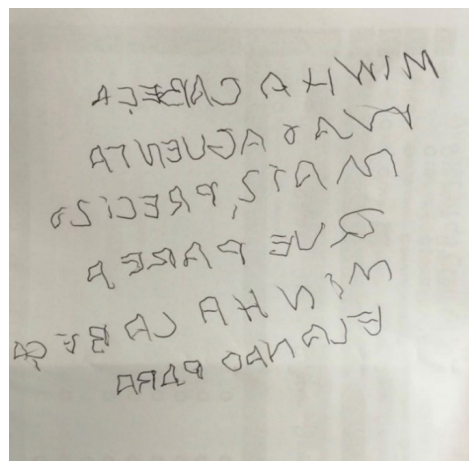 MINHA CABEÇA
NAO AGUENTA
MAIS, PRECISO
QUE PARE A
MINHA CABEÇA
PARA